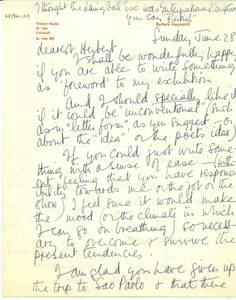 I thought the Living Art Exc was "International Scripture"
You say "British"
Trewyn Studio
St. Ives
Cornwall
St. Ives 986
Barbara Hepworth
Sunday June 28
dearest Herbert.
I shall be wonderfully happy
if you are able to write something
as 'foreword' to my exhibition
And I should specially like it
if it could be 'unconventional' (such
as in "letter form", as you suggest or
about the "idea" or the poets idea)
If you could just write some-
thing with a sense of ease – (without
feeling that you have respons-
ibility towards me or the job or the
show) I feel sure it would make
the mood (or the climate in which
I can go on breathing) so necess-
ary to overcome & survive the
present tendencies.
I am glad you have given up
the trip to Sao Paolo & that there